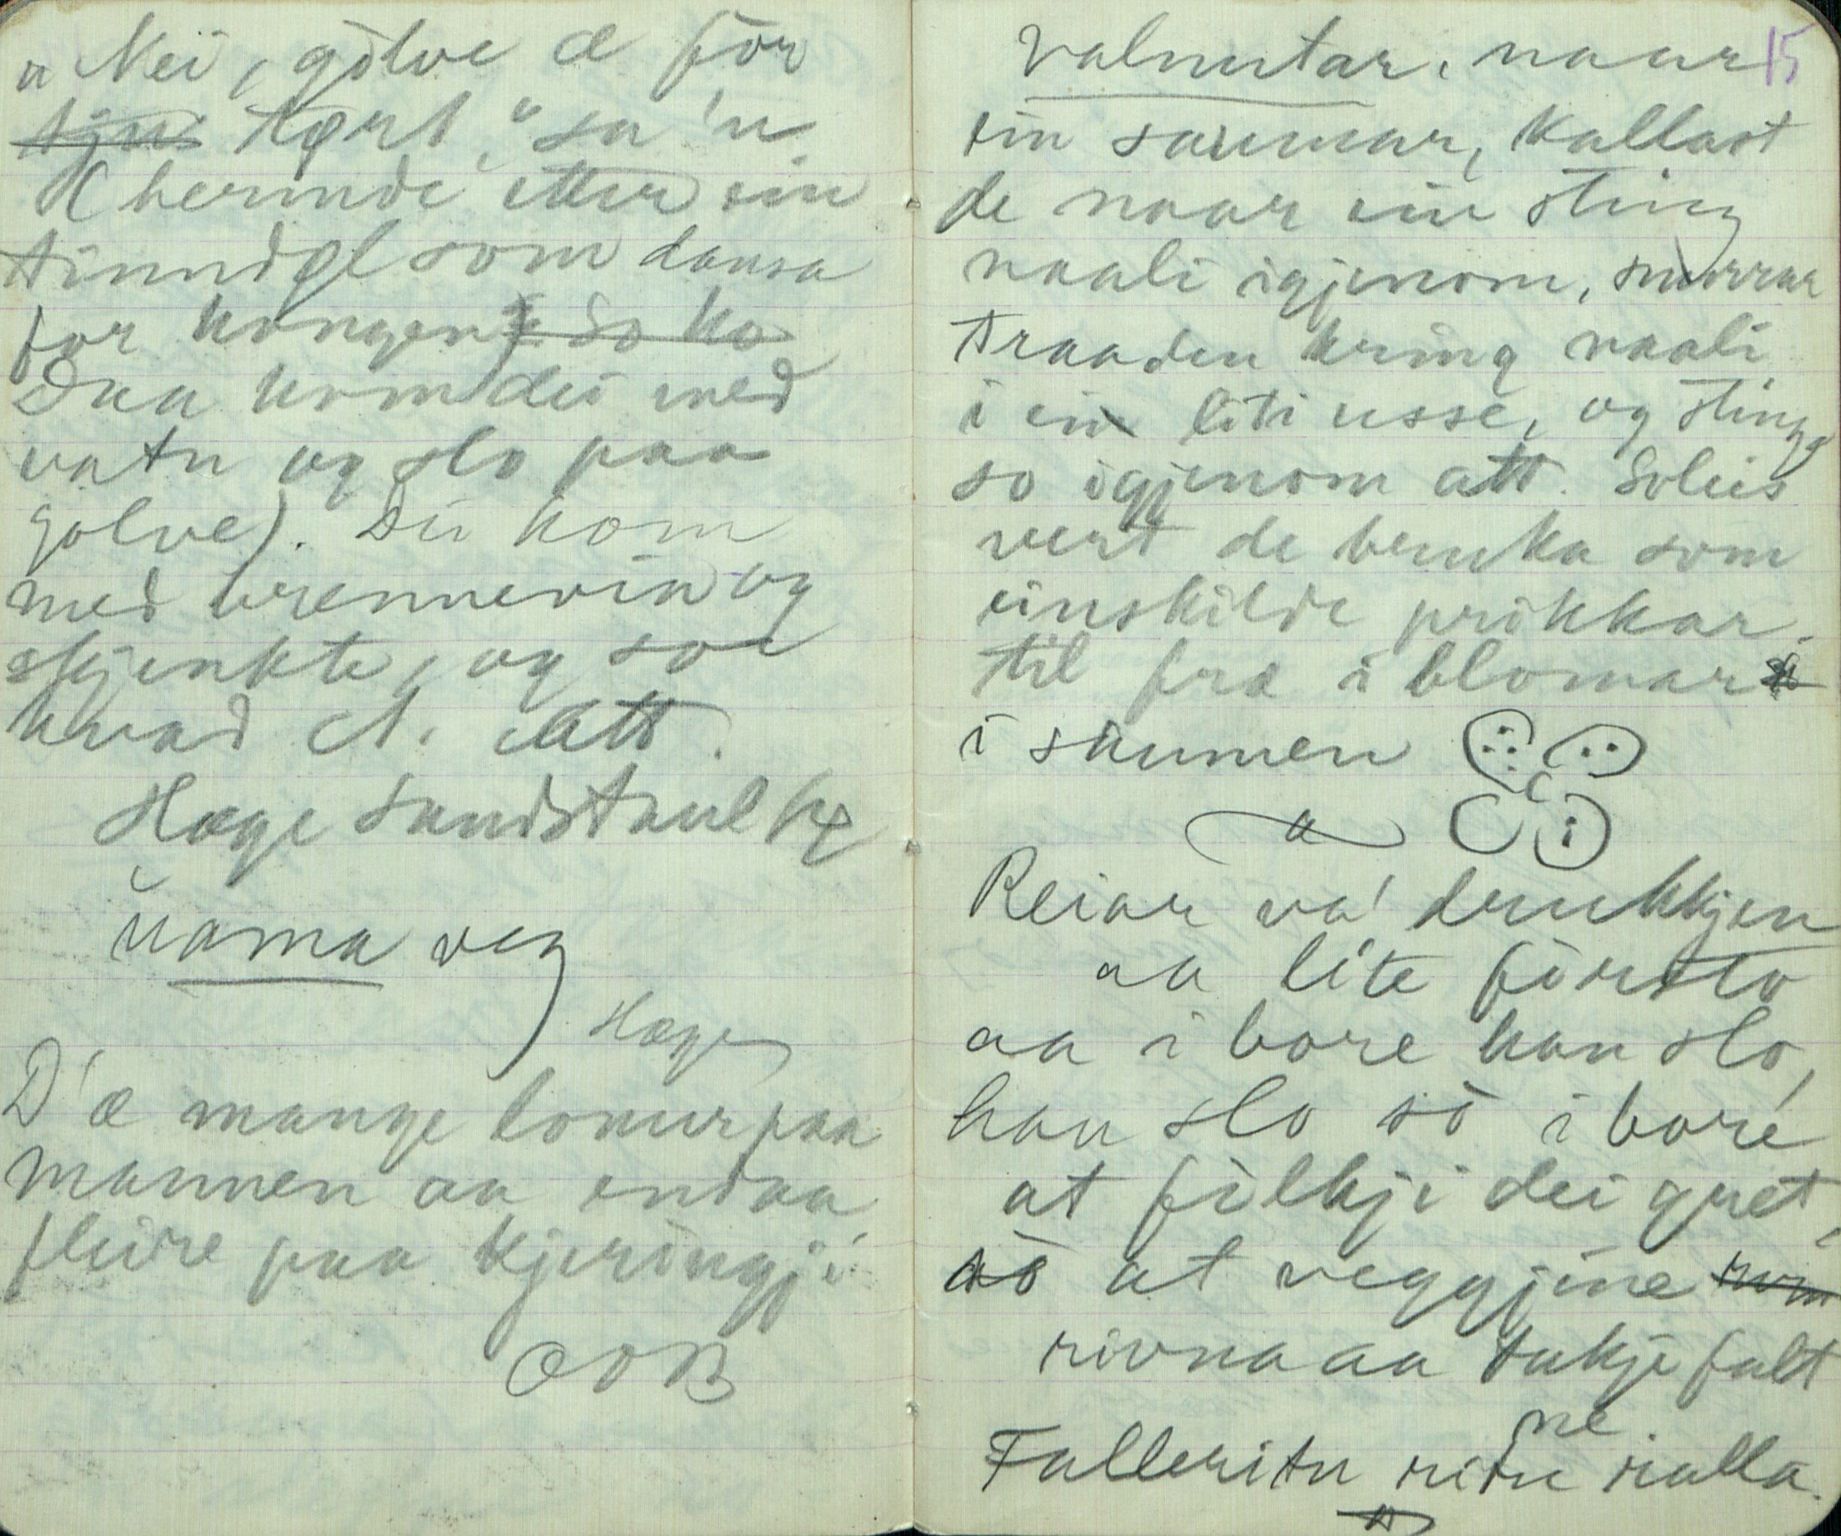 "Nei, gòlve æ fòr
tju tørt," sa 'n
(hermde etter ein
tinndøl som dansa
for kongen). So ko
Daa kom dei med
vatn og slo paa
golve). Dei kom
med brennevin og
skjenkte, og so
kvad A. att.
Hæge Sundstaul
uama veg
Hæge
D'æ mange loner paa
mannen aa endaa
fleire paa kjeringji
OOB
15
valnutar, naar
ein saumar, kallast
de naar ein sting
naali igjenom, snorrar
traaden kring naali
i ei liti usse, og stinge
so igjenom att. Soleis
vert de bruka som
einskilde prikkar
til frø i blomar
i saumen
Reiar va' drukkjen
aa lite fòrsto
aa i bore han slo,
han slo sò i bore
at fòlkji dei gret,
sò at veggjine
rivna aa takje falt
ne.
Falleritu ritu ralla.